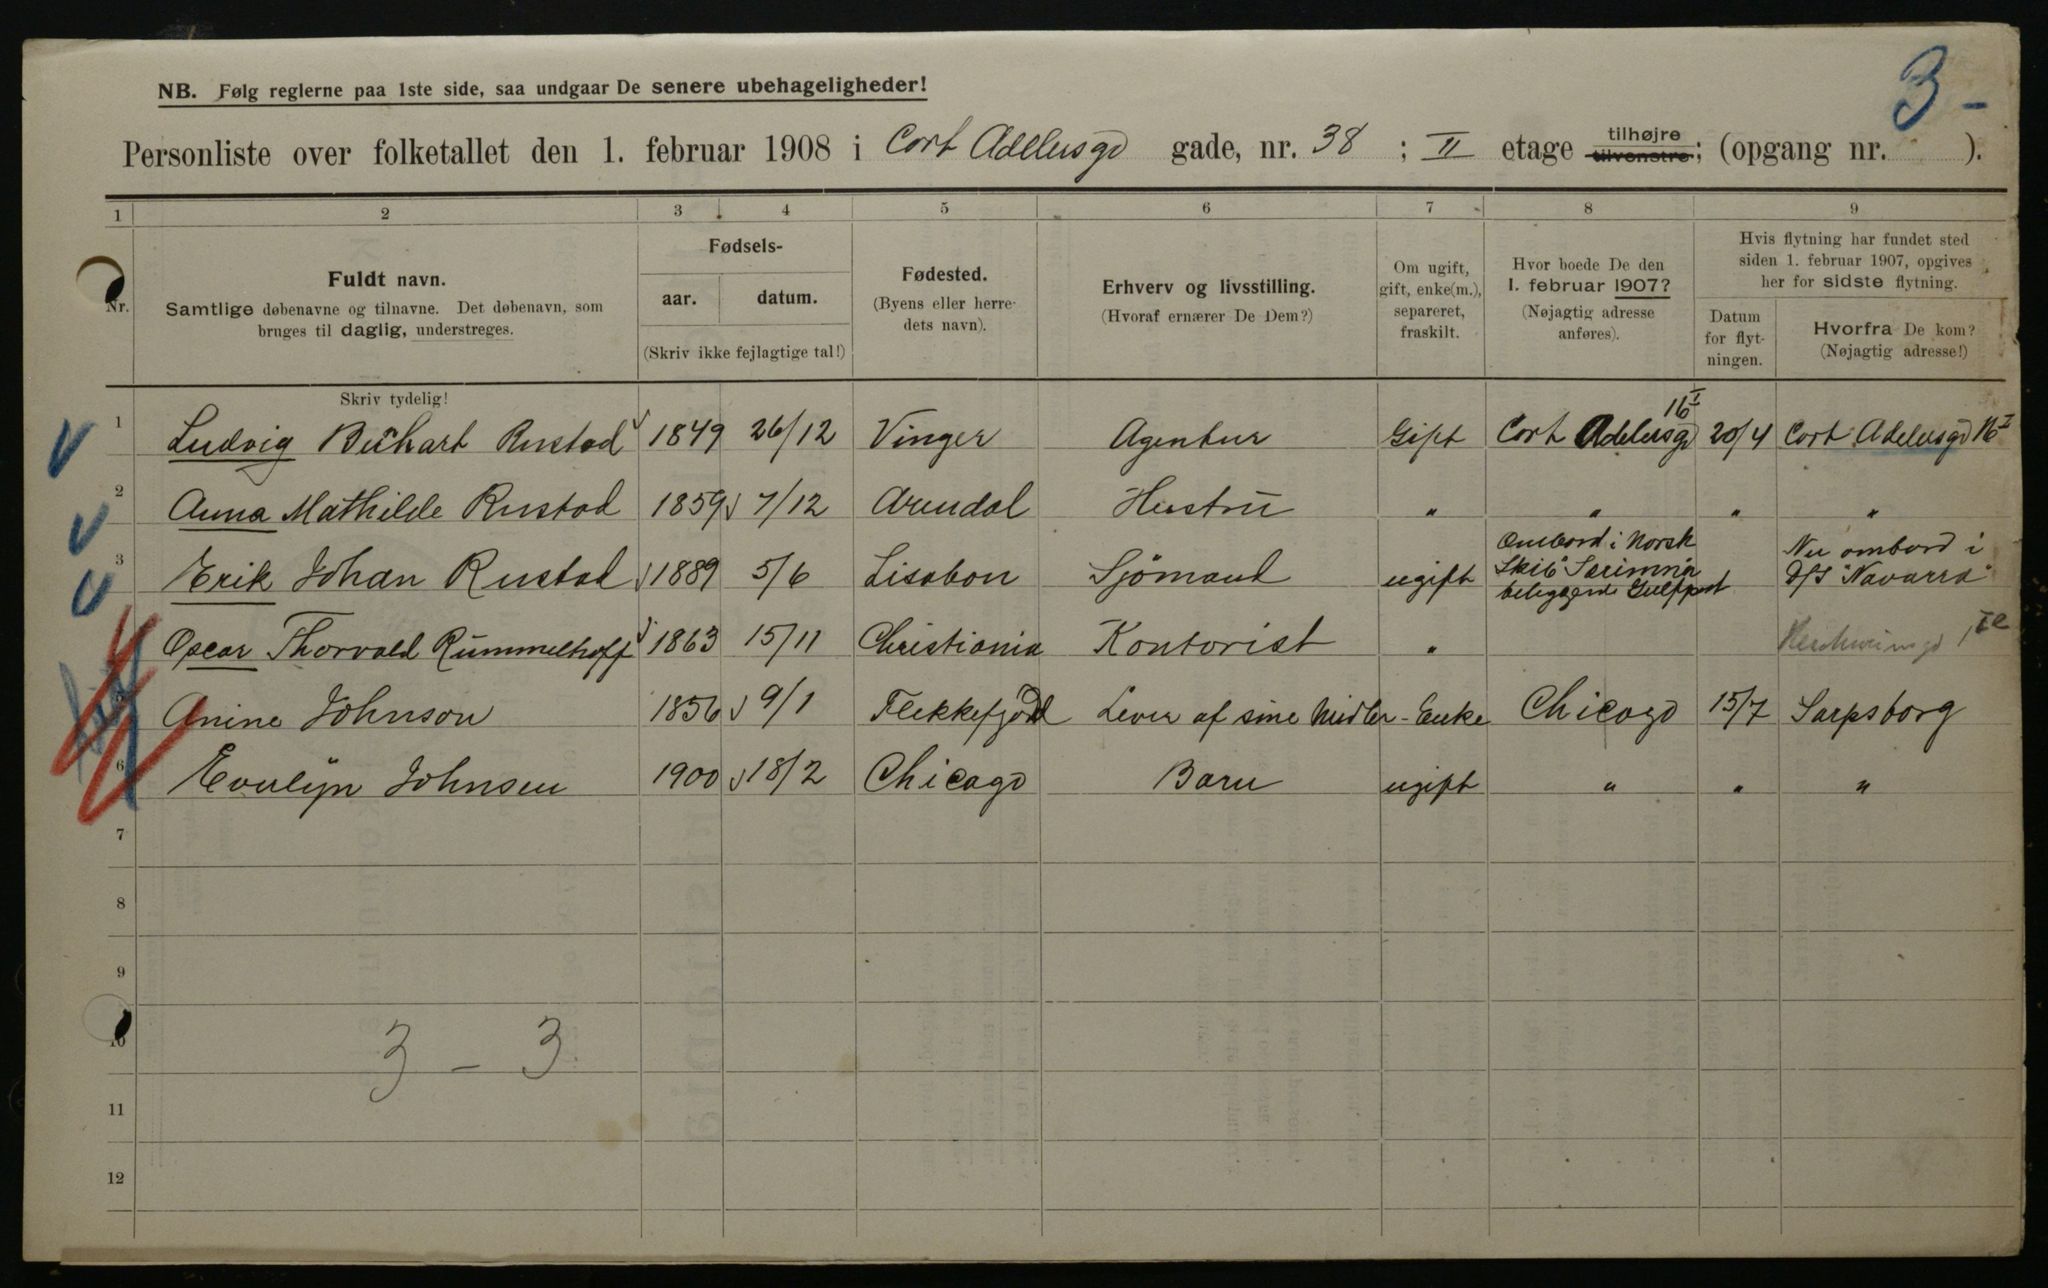 3 –
NB. Følg reglerne paa 1ste side, saa undgaar De senere ubehageligheder!
Personliste over folketallet den 1. februar 1908 i Cort Adelersgd gade, nr. 38 ; II etage tilhøjre tilvenstre; (opgang nr. ).
1 2 3 4 5 6 7 8 9
Nr.
Fuldt navn.
Samtlige døbenavne og tilnavne. Det døbenavn, som
bruges til daglig, understreges.
Skriv tydelig!
Fødsels-
aar. datum.
(Skriv ikke fejlagtige tal!)
Fødested.
(Byens eller herre-
dets navn).
Erhverv og livsstilling.
(Hvoraf ernærer De Dem?)
Om ugift,
gift, enke(m.),
separeret,
fraskilt.
Hvor boede De den
1. februar 1907?
(Nøjagtig adresse
anføres).
Hvis flytning har fundet sted
siden 1. februar 1907, opgives
her for sidste flytning.
Datum
for flyt-
ningen.
Hvorfra De kom?
(Nøjagtig adresse!)
1 Ludvig Rustad 1849 26/12 Vinger Agentur Gift Cort Adelersgd 16 I 20/4 Cort Adelersgd 16 I
2 Anna Mathilde Rustad 1859 7/12 Arendal Hustru " " " "
3 Erik Johan Rustad 1889 5/6 Lissbon Sjömand ugift Ombord i Norsk Skib "Særimna" Nu ombord i D/S "Navarra"
Oscar Thorvald Rummelhoff 1863 15/11 Christiania Kontorist "
5 Anine Johnson 1856 9/1 Flekkefjord Lever af sine Midler - Enke Chicago 15/7 Sarpsborg
6 Evelyn Johnsen 1900 18/2 Chicago Barn ugift " " "
7
8
9
10
3 – 3
11
12